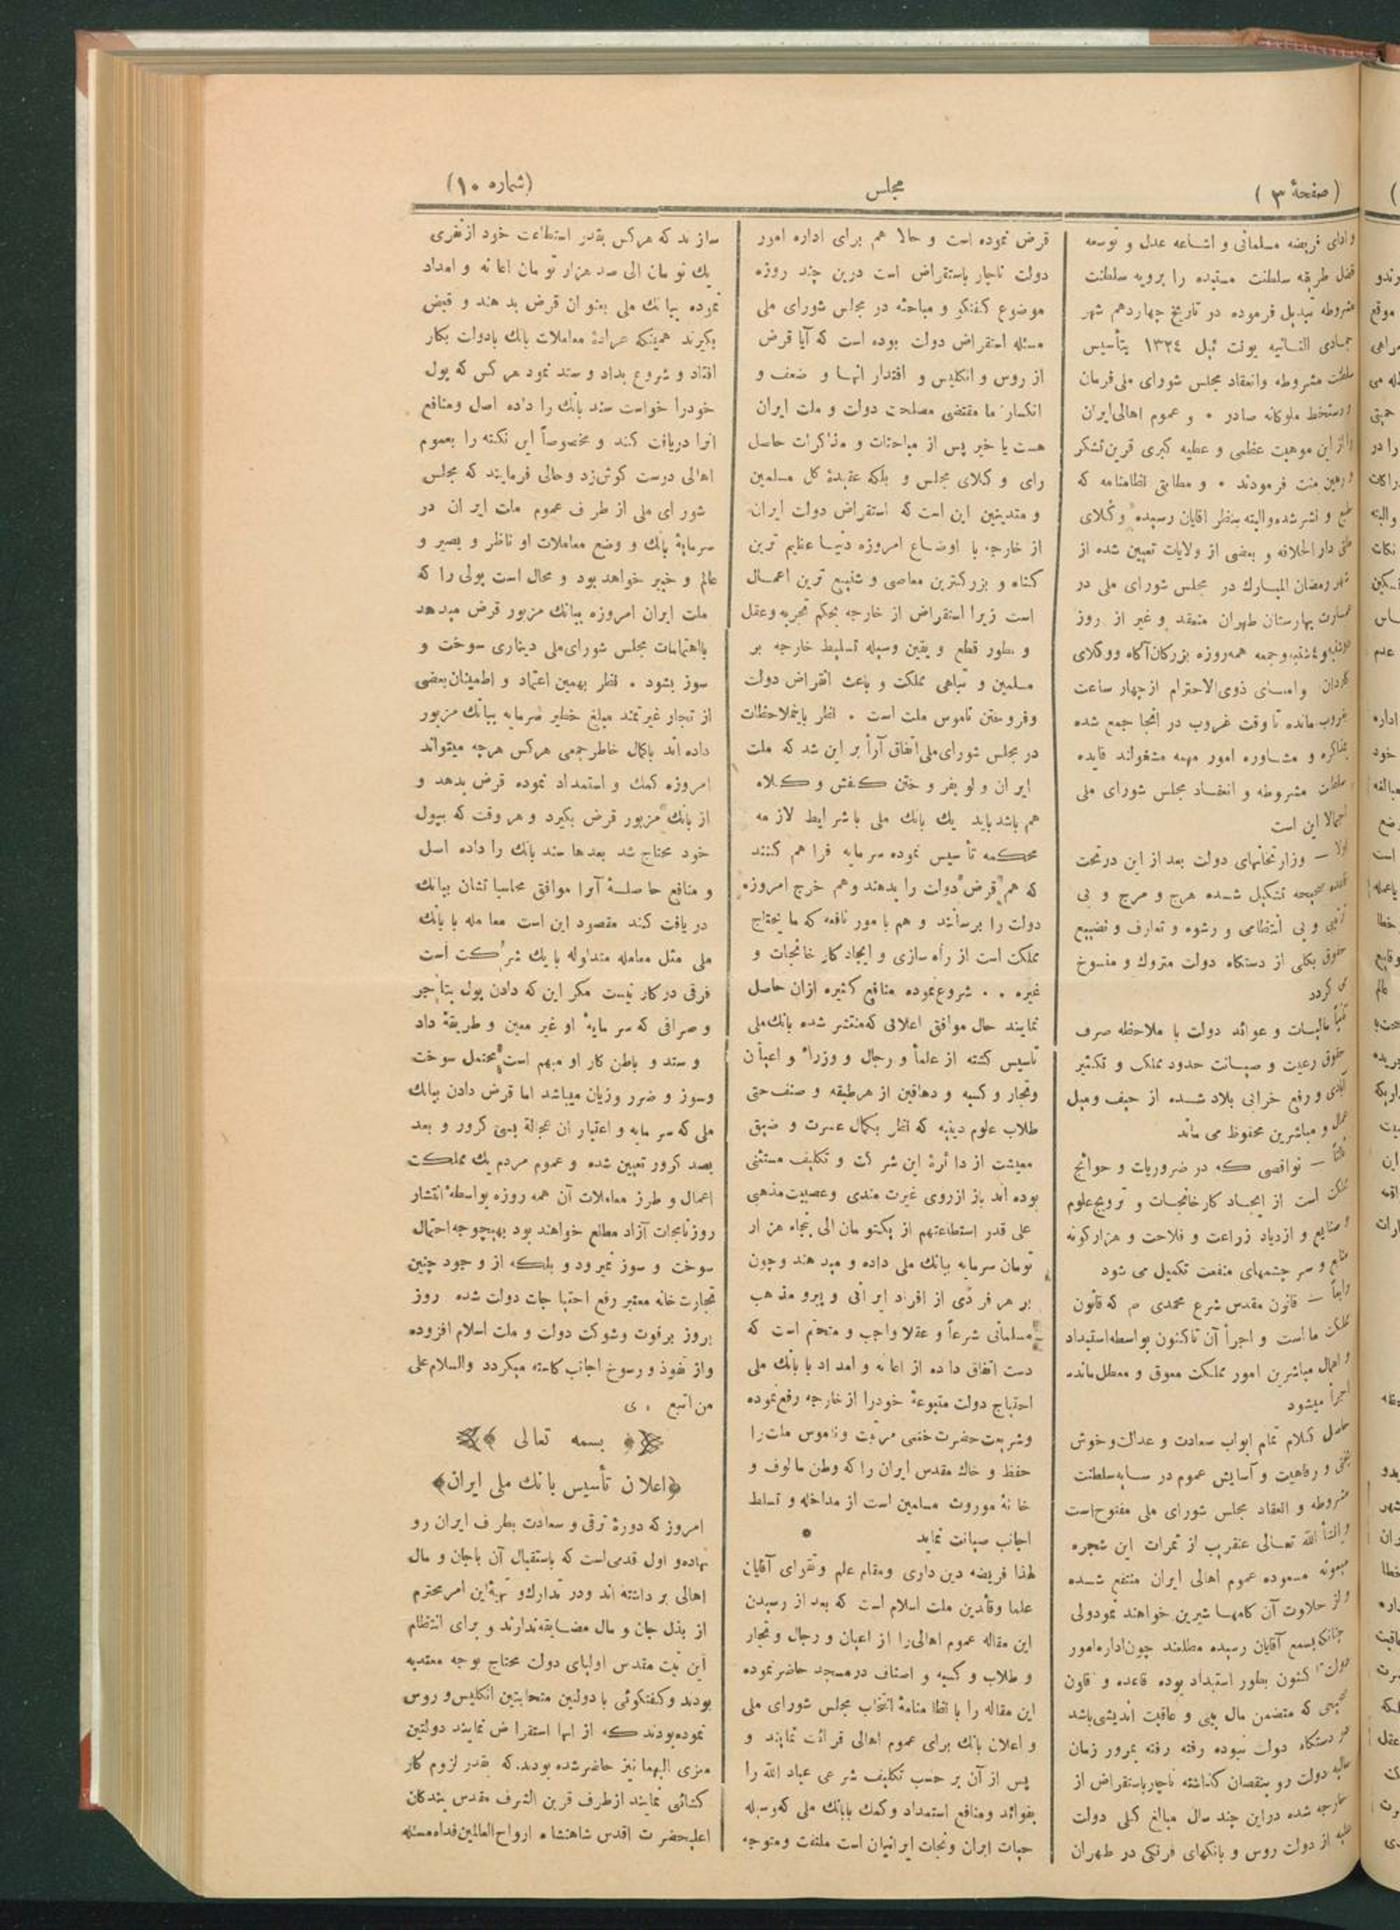 (صفحهٔ ۳)
مجلس
(شماره ۱۰)
و ادای فریضه مسلمانی و اشاعه عدل و توسعه
فضل طریقه سلطنت مستبده را برویه سلطنت
مشروطه تبدیل فرموده در تاریخ چهاردهم شهر
جمادی الثانیه یونت ئیل ۱۳۲٤ بتأسیس
سلطنت مشروطه وانعقاد مجلس شورای ملی فرمان
و دستخط ملوکانه صادر • و عموم اهالی ایران
را از این موهبت عظمی و عطیه کبری قرین تشکر
و رهین منت فرمودند • و مطابق نظامنامه که
طبع و نشر شده والبته بنظر اقایان رسیده وکلای
ملی دار الخلافه و بعضی از ولایات تعیین شده از
شهر رمضان المبارك در مجلس شورای ملی در
عمارت بهارستان طهران منعقد و غیر از روز
وجمعه همه‌روزه بزرکان آکاه ووکلای
کاردان وامنای ذوی الاحترام ازچهار ساعت
بغروب مانده تا وقت غروب در انجا جمع شده
بمذاکره و مشاوره امور مهمه مشغولند فایده
سلطنت مشروطه و انعقاد مجلس شورای ملی
اجمالا این است
اولا — وزارتخانهای دولت بعد از این درتحت
قاعده صحیحه تشکیل شده هرج و مرج و بی
ترتیبی و بی انتظامی و رشوه و تعارف و تضییع
حقوق بکلی از دستکاه دولت متروك و منسوخ
می کردد
ثانیاً مالیات و عوائد دولت با ملاحظه صرف
حقوق رعیت و صیانت حدود مملکت و تکثیر
آبادی و رفع خرابی بلاد شده از حیف ومیل
عمال و مباشرین محفوظ می ماند
ثالثاً — نواقصی که در ضروریات و حوائج
مملکت است از ایجاد کارخانجات و ترویج علوم
و صنایع و ازدیاد زراعت و فلاحت و هزارکونه
منابع و سر چشمهای منفعت تکمیل می شود
رابعاً — قانون مقدس شرع محمدی ص که قانون
مملکت ما است و اجرأ آن تاکنون بواسطه استبداد
و اهمال مباشرین امور مملکت معوق و معطل مانده
اجرا میشود
حاصل کلام تمام ابواب سعادت و عدالت وخوش
بختی و رفاهیت و آسایش عموم در سایه سلطنت
مشروطه و انعقاد مجلس شورای ملی مفتوح است
و انشأ الله تعالی عنقریب از ثمرات این شجره
میمونه مسعوده عموم اهالی ایران منتفع شده
و از حلاوت آن کامها شیرین خواهند نمود ولی
چنانکه بسمع آقایان رسیده مطلعند چون اداره امور
دولت تا کنون بطور استبداد بوده قاعده و قانون
صحیحی که متضمن مآل بینی و عاقبت اندیشی باشد
در دستکاه دولت نبوده رفته رفته بمرور زمان
مالیه دولت رو بنقصان کذاشته ناچار باستقراض از
خارجه شده دراین چند سال مبالغ کلی دولت
علیه از دولت روس و بانکهای فرنکی در طهران
قرض نموده است و حالا هم برای اداره امور
دولت ناچار باستقراض است درین چند روزه
موضوع کفتکو و مباحثه در مجلس شورای ملی
مسئله استقراض دولت بوده است که آیا قرض
از روس و انکلیس و اقتدار انها و ضعف و
انکسار ما مقتضی مصلحت دولت و ملت ایران
هست یا خیر پس از مباحثات و مذاکرات حاصل
رای وکلای مجلس و بلکه عقیدهٔ کل مسلمین
و متدینین این است که استقراض دولت ایران
از خارجه با اوضاع امروزه دنیا عظیم ترین
کناه و بزرکترین معاصی و شنیع ترین اعمال
است زیرا استقراض از خارجه بحکم تجربه وعقل
و بطور قطع و یقین وسیله تسلیط خارجه بر
مسلمین و تباهی مملکت و باعث انقراض دولت
وفروختن ناموس ملت است • نظر باینملاحظات
در مجلس شورای ملی اتفاق آرأ بر این شد که ملت
ایران ولو بفروختن کفش و کلاه
هم باشد باید یك بانك ملی با شرایط لازمه
محکمه تأسیس نموده سرمایه فراهم کنند
که هم قرض دولت را بدهند وهم خرج امروزه
دولت را برسانند و هم بامور نافعه که مایحتاج
مملکت است از راه سازی و ایجاد کارخانجات و
غیره • • شروع نموده منافع کثیره ازان حاصل
نمایند حال موافق اعلانی که منتشر شده بانك ملی
تأسیس کشته از علمأ و رجال و وزرأ و اعیان
وتجار و کسبه و دهاقین از هرطبقه و صنف حتی
طلاب علوم دینیه که نظر بکمال عسرت و ضیق
معیشت از دائرهٔ این شرکت و تکلیف مستثنی
بوده اند باز ازروی غیرت مندی وعصبیت مذهبی
علی قدر استطاعتهم از یکتومان الی پنجاه هزار
تومان سرمایه ببانك ملی داده و میدهند وچون
بر هر فردی از افراد ایرانی و پیرو مذهب
مسلمانی شرعاً و عقلا واجب و متحتم است که
دست اتفاق داده از اعانه و امداد با بانك ملی
احتیاج دولت متبوعهٔ خودرا از خارجه رفع نموده
وشریعت حضرت ختمی مرتبت وناموس ملت را
حفظ و خاك مقدس ایران را که وطن مالوف و
خانهٔ موروث مسلمین است از مداخله و تسلط
اجانب صیانت نماید •
لهذا فریضه دین داری ومقام علم وتقرای آقایان
علما وقائدین ملت اسلام است که بعد از رسیدن
این مقاله عموم اهالی را از اعیان و رجال و تجار
و طلاب و کسبه و اصناف درمسجد حاضرنموده
این مقاله را با نظامنامهٔ انتخاب مجلس شورای ملی
و اعلان بانك برای عموم اهالی قرائت نمایند و
پس از آن بر حسب تکلیف شرعی عباد الله را
بفوائد ومنافع استمداد وکمك بابانك ملی که وسیله
حیات ایران ونجات ایرانیان است ملتفت ومتوجه
سازند که هرکس بقدر استطاعت خود ازنفری
یك تومان الی صد هزار تومان اعانه و امداد
نموده ببانك ملی بعنوان قرض بدهند و قبض
بکیرند همینکه عرادهٔ معاملات بانك بادولت بکار
افتاد و شروع بداد و ستد نمود هرکس که پول
خودرا خواست سند بانك را داده اصل ومنافع
انرا دریافت کند و مخصوصاً این نکته را بعموم
اهالی درست کوش‌زد وحالی فرمایند که مجلس
شورای ملی از طرف عموم ملت ایران در
سرمایهٔ بانك و وضع معاملات او ناظر و بصیر و
عالم و خبیر خواهد بود و محال است پولی را که
ملت ایران امروزه ببانك مزبور قرض میدهد
بااهتمامات مجلس شورای ملی دیناری سوخت و
سوز بشود • نظر بهمین اعتماد و اطمینان بعضی
از تجار غیرتمند مبلغ خطیر سرمایه ببانك مزبور
داده اند باکمال خاطرجمعی هرکس هرچه میتواند
امروزه کمك و استمداد نموده قرض بدهد و
از بانك مزبور قرض بکیرد و هر وقت که بپول
خود محتاج شد بعدها سند بانك را داده اصل
و منافع حاصلهٔ آنرا موافق محاسباتشان ببانك
دریافت کند مقصود این است معامله با بانك
ملی مثل معامله متداوله با یك شرکت است
فرقی درکار نیست مکر این که دادن پول بتاجر
و صرافی که سر مایهٔ او غیر معین و طریقهٔ داد
و ستد و باطن کار او مبهم است محتمل سوخت
وسوز و ضرر وزیان میباشد اما قرض دادن ببانك
ملی که سر مایه و اعتبار آن عجالة بسی کرور و بعد
بصد کرور تعیین شده و عموم مردم یك مملکت
اعمال و طرز معاملات آن همه روزه بواسطهٔ انتشار
روزنامجات آزاد مطلع خواهند بود بهیچوجه احتمال
سوخت و سوز نمیرود و بلکه از وجود چنین
تجارت خانه معتبر رفع احتیاجات دولت شده روز
بروز برقوت وشوکت دولت و ملت اسلام افزوده
واز نفوذ و رسوخ اجانب کاسته میکردد والسلام علی
من اتبع
بسمه تعالی
﴿اعلان تأسیس بانك ملی ایران﴾
امروز که دورهٔ ترقی و سعادت بطرف ایران رو
نهاده و اول قدمی است که باستقبال آن باجان و مال
اهالی بر داشته اند ودر تدارك و تهیهٔ این امر محترم
از بذل جان و مال مضایقه ندارند و برای انتظام
این نیت مقدس اولیای دولت محتاج بوجه معتدبه
بودند وکفتکوئی با دولتین متحابتین انکلیس و روس
نموده بودند که از انها استقراض نمایند دولتین
معزی الیهما نیز حاضرشده بودند. که بقدر لزوم کار
کشائی نمایند ازطرف قرین الشرف مقدس بندکان
اعلیحضرت اقدس شاهنشاه ارواح العالمین فداه مسئله